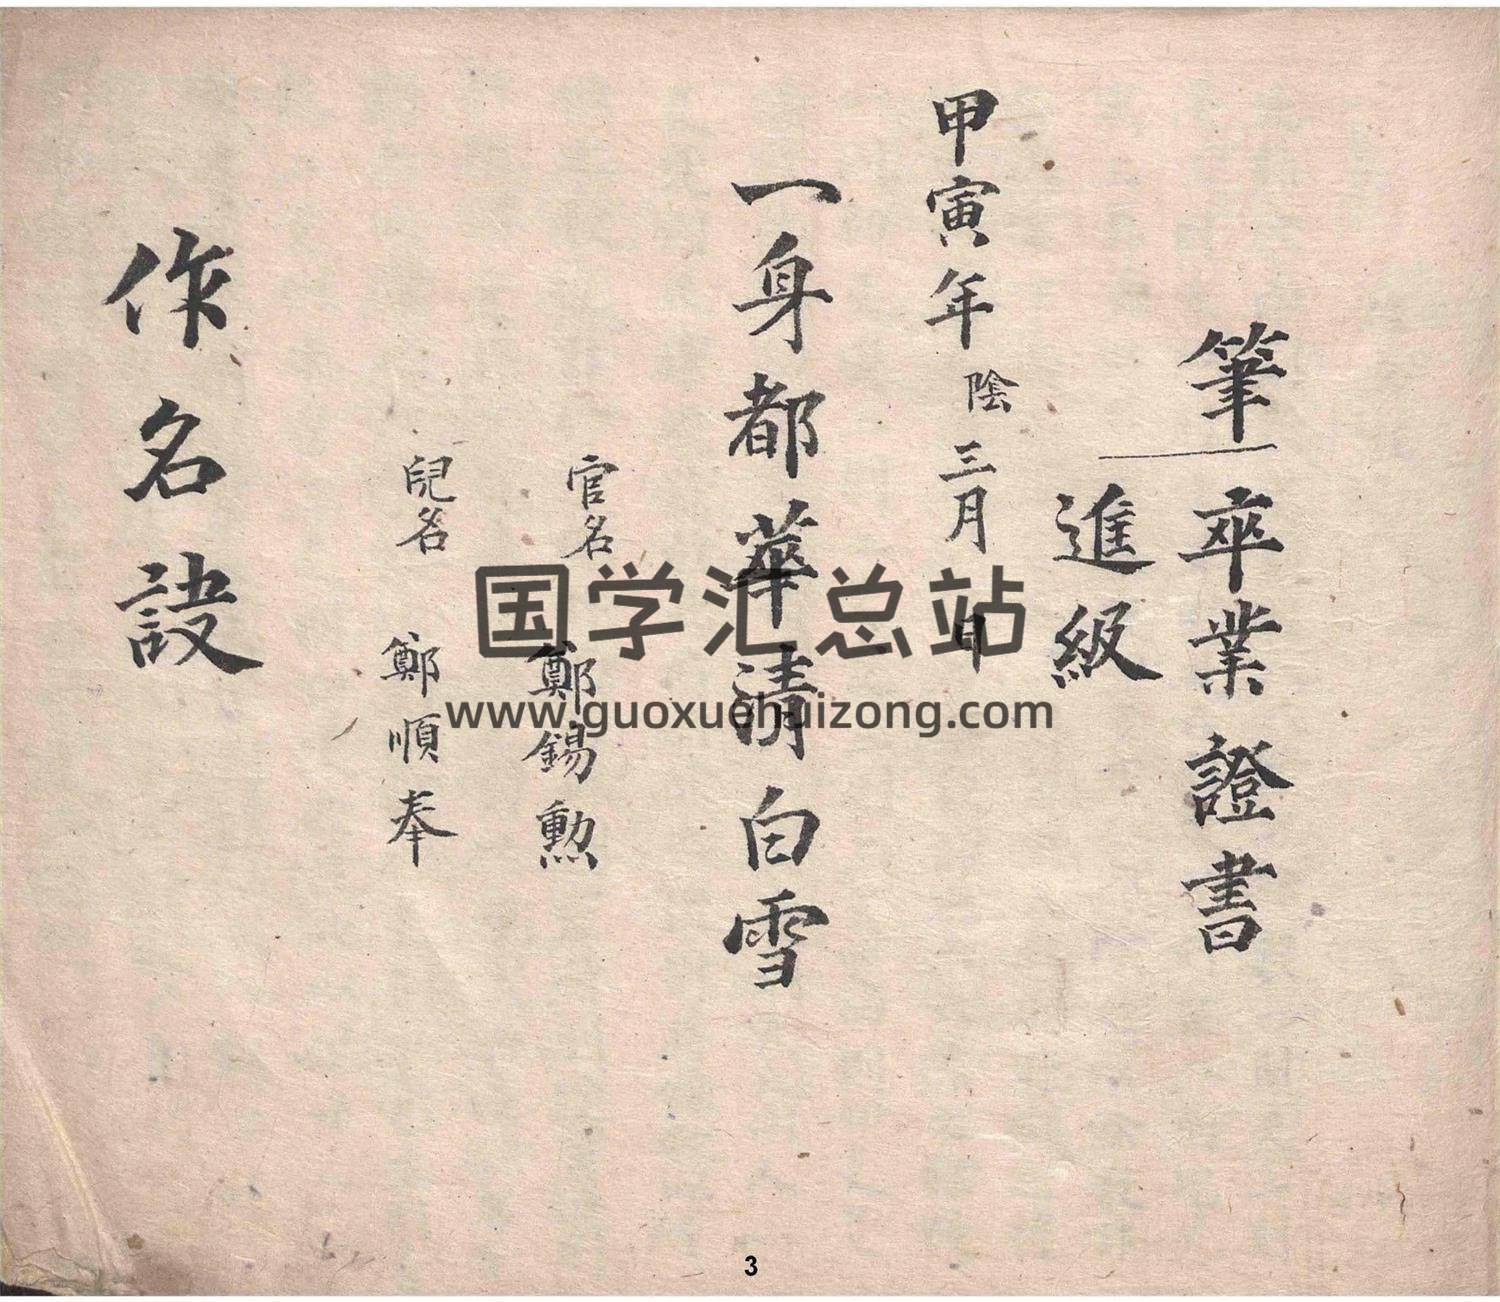 筆卒業證書
進級
甲寅年陰三月 日
一身都華清白雪
官名 鄭錫勲
兒名 鄭順奉
作名訣
国学汇总站
www.guoxuehuizong.com
3